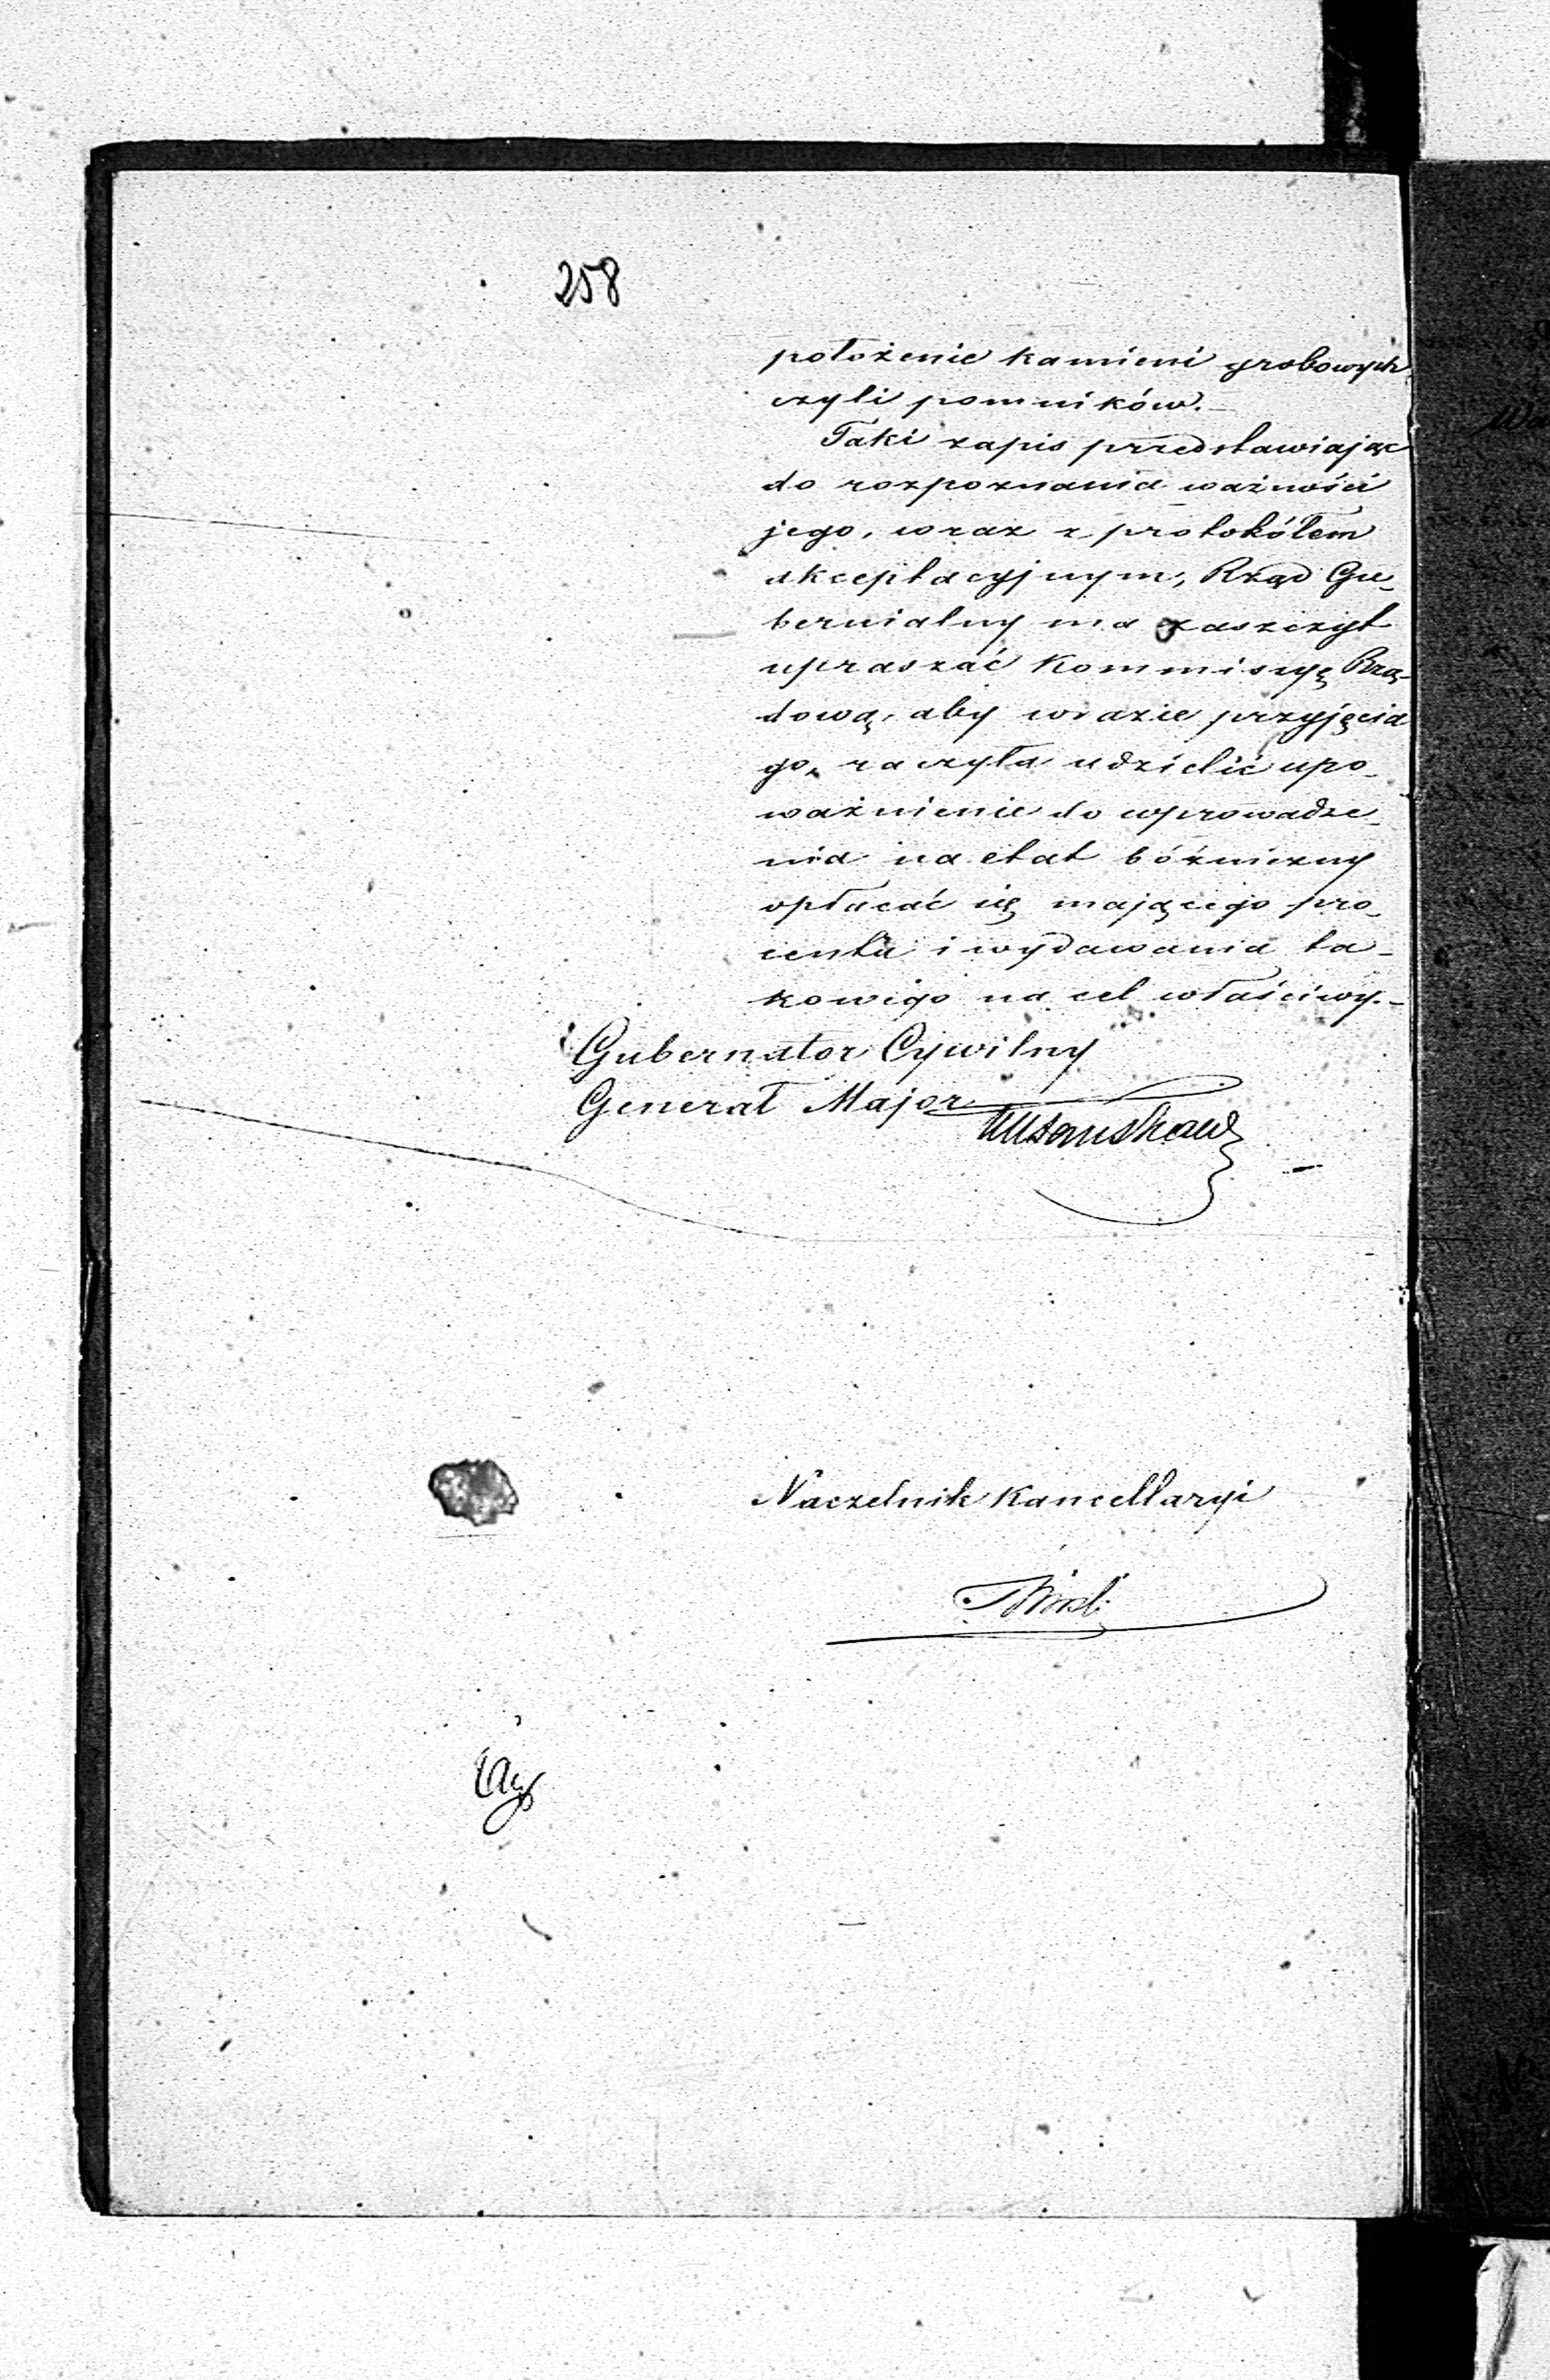 258
położenie kamieni grobowych
czyli pomników.—
Taki zapis przedstawiając
do rozpoznania ważności
jego, wraz z protokółem
akceptacyjnym, Rząd Gu_
bernialny ma zaszczyt
upraszać Kommissyę Rzą_
dową, aby wrazie przyjęcia
go, raczyła udzielić upo_
ważnienie do wprowadze_
nia na etat bóżniczny
opłacać się mającego pro_
centu i wydawania ta_
kowego na cel właściwy.—
Gubernator Cywilny
Generał Major
Naczelnik Kancellaryi